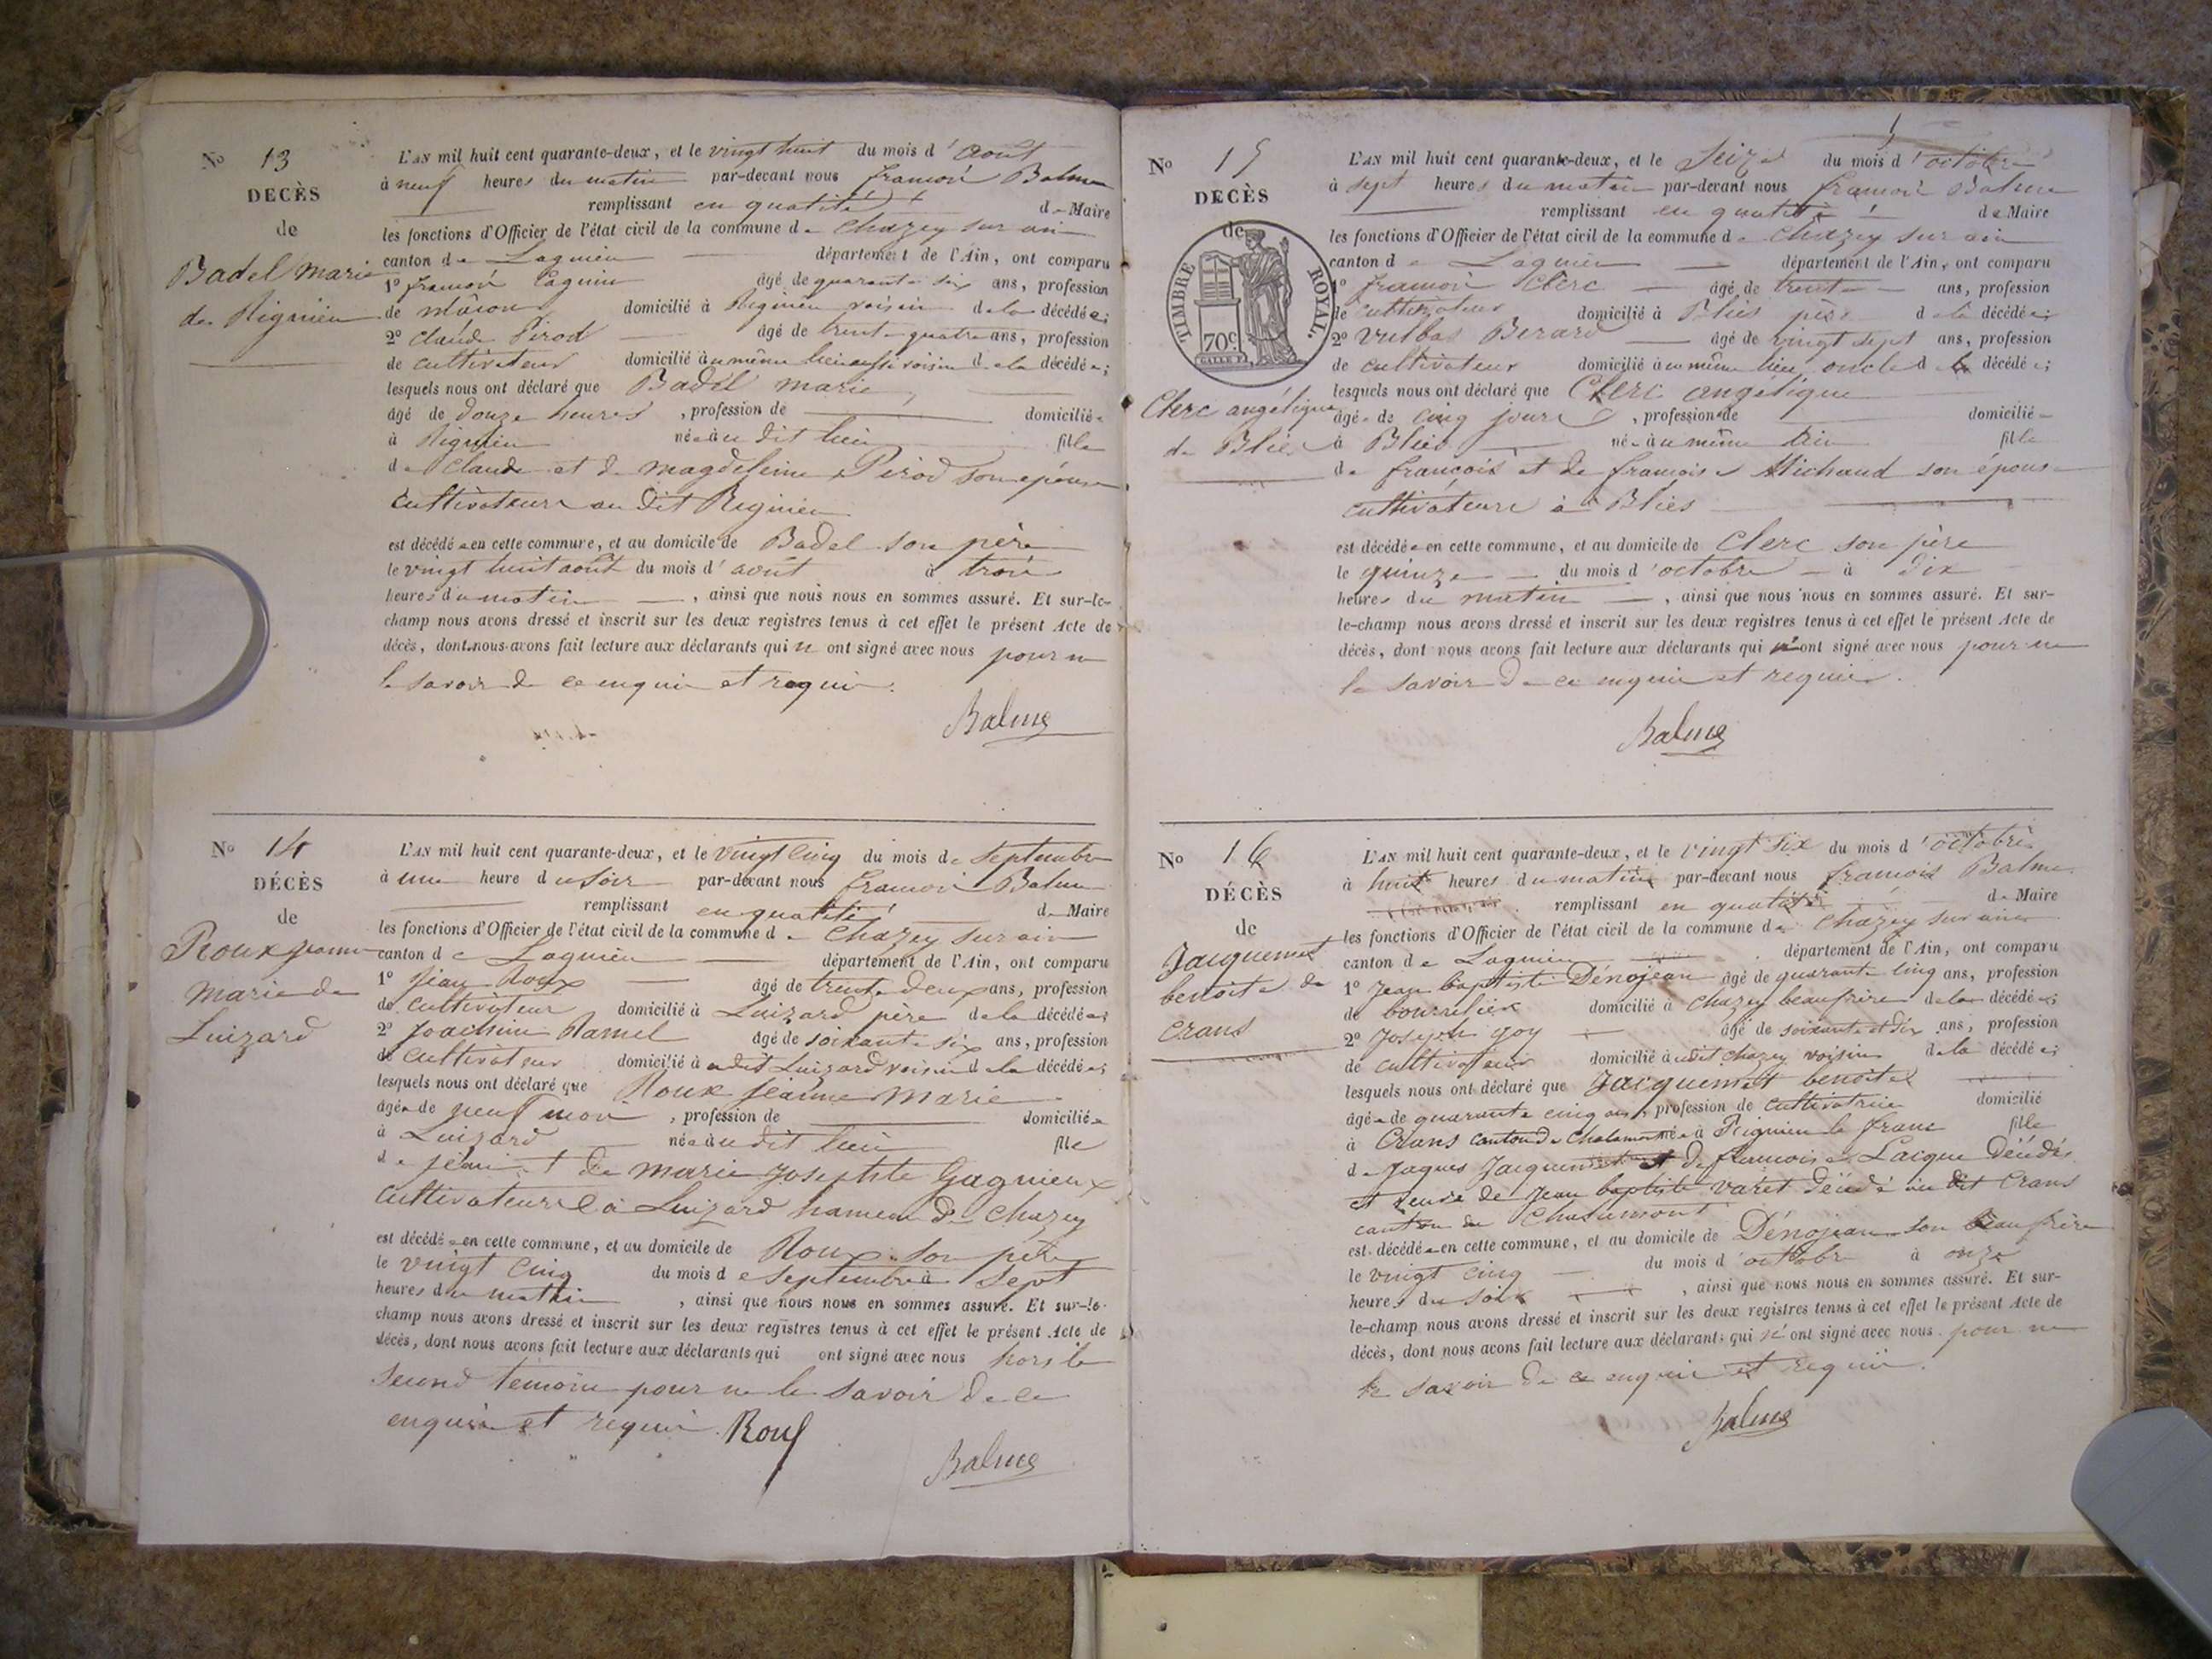 No 13
DECÈS
de
Badel Marie
de Rignieu
L'AN mil huit cent quarante-deux, et le vingt huit du mois d'aout
à neuf heures du matin par-devant nous françois Balme
remplissant en qualité de Maire
les fonctions d'Officier de l'état civil de la commune de Chazey sur ain
canton de Lagnieu département de l'Ain, ont comparu
1º françois âgé de quarante six ans, profession
de maçon domicilié à Rignieu voisin de la décédée;
2º claude Pirod âgé de trente quatre ans, profession
de cultivateur domicilié au même lieu aussi voisin de la décédée;
lesquels nous ont déclaré que Badel marie,
âgé de douze heures, profession de domiciliée
à Rignieu née au dit lieu fille
de Claude et de magdeleine Pirod son épouse
cultivateurs au dit Rignieu
est décédée en cette commune, et au domicile de Badel son père
le vingt huit août du mois d'août à trois
heures du matin, ainsi que nous nous en sommes assuré. Et sur-le-
champ nous avons dressé et inscrit sur les deux registres tenus à cet effet le présent Acte de
décès, dont nous avons fait lecture aux déclarants qui n ont signé avec nous pour ne
le savoir de ce enquis et requis.
Balme
No 14
DÉCÈS
de
Roux jeanne
marie de
Luizard
L'AN mil huit cent quarante-deux, et le vingt cinq du mois de septembre
à une heure du soir par-devant nous françois Balme
remplissant en qualité de Maire
les fonctions d'Officier de l'état civil de la commune de Chazey sur ain
canton de Lagnieu département de l'Ain, ont comparu
1º Jean Roux âgé de trente deux ans, profession
de cultivateur domicilié à Luizard père de la décédée;
2º Joachim Ramel âgé de soixante six ans, profession
de cultivateur domicilié à udit Luizard voisin de la décédée;
lesquels nous ont déclaré que Roux jeanne marie
âgée de neuf mois, profession de domiciliée
à Luizard née au dit lieu fille
de jean et de marie josephte Gagnieux
cultivateurs à Luizard hameau de Chazey
est décédée en cette commune, et au domicile de Roux son père
le vingt cinq du mois de septembre à sept
heures du matin, ainsi que nous nous en sommes assuré. Et sur-le-
champ nous avons dressé et inscrit sur les deux registres tenus à cet effet le présent Acte de
décès, dont nous avons fait lecture aux déclarants qui ont signé avec nous hors le
second témoin pour ne le savoir de ce
enquis et requis. Roux
Balme
No 15
DECÈS
de
TIMBRE ROYAL.
70c
Clerc angélique
de Bliès
L'AN mil huit cent quarante-deux, et le seize du mois d'octobre
à sept heures du matin par-devant nous françois Balme
remplissant en qualité de Maire
les fonctions d'Officier de l'état civil de la commune de Chazey sur ain
canton de Lagnieu département de l'Ain, ont comparu
1º françois Clerc âgé de trente ans, profession
de cultivateur domicilié à Bliès père de la décédée;
2º vulbas Berard âgé de vingt sept ans, profession
de cultivateur domicilié au même lieu, oncle de la décédée;
lesquels nous ont déclaré que Clerc angélique
âgée de cinq jours, profession de domiciliée
à Bliès née au même lieu fille
de françois et de françoise Michaud son épouse
cultivateurs à Bliès
est décédée en cette commune, et au domicile de Clerc son père
le quinze du mois d'octobre à dix
heures du matin, ainsi que nous nous en sommes assuré. Et sur-
le-champ nous avons dressé et inscrit sur les deux registres tenus à cet effet le présent Acte de
décès, dont nous avons fait lecture aux déclarants qui n'ont signé avec nous pour ne
le savoir de ce enquis et requis.
Balme
No 16
DÉCÈS
de
Jacquemet
benoite de
Crans
L'AN mil huit cent quarante-deux, et le vingt six du mois d'octobre
à huit heures du matin par-devant nous françois Balme
remplissant en qualité de Maire
les fonctions d'Officier de l'état civil de la commune de Chazey sur ain
canton de Lagnieu département de l'Ain, ont comparu
1º Jean baptiste Dénojean âgé de quarante cinq ans, profession
de bourrelier domicilié à Chazey beaufrère de la décédée;
2º Joseph goy âgé de soixante et dix ans, profession
de cultivateur domicilié à udit chazey voisin de la décédée;
lesquels nous ont déclaré que Jacquemet benoite
âgée de quarante cinq ans, profession de cultivatrice domicilié
à Crans canton de Chalamont née à Rignieu le franc fille
de Jaques Jacquemet et de françoise Laigue décédés
et veuve de Jean baptiste varet décédé au dit Crans
canton de Chalamont
est décédée en cette commune, et au domicile de Dénojean son beau frère
le vingt cinq du mois d'octobre à onze
heures du soir, ainsi que nous nous en sommes assuré. Et sur-
le-champ nous avons dressé et inscrit sur les deux registres tenus à cet effet le présent Acte de
décès, dont nous avons fait lecture aux déclarants qui n'ont signé avec nous pour ne
le savoir de ce enquis et requis.
Balme